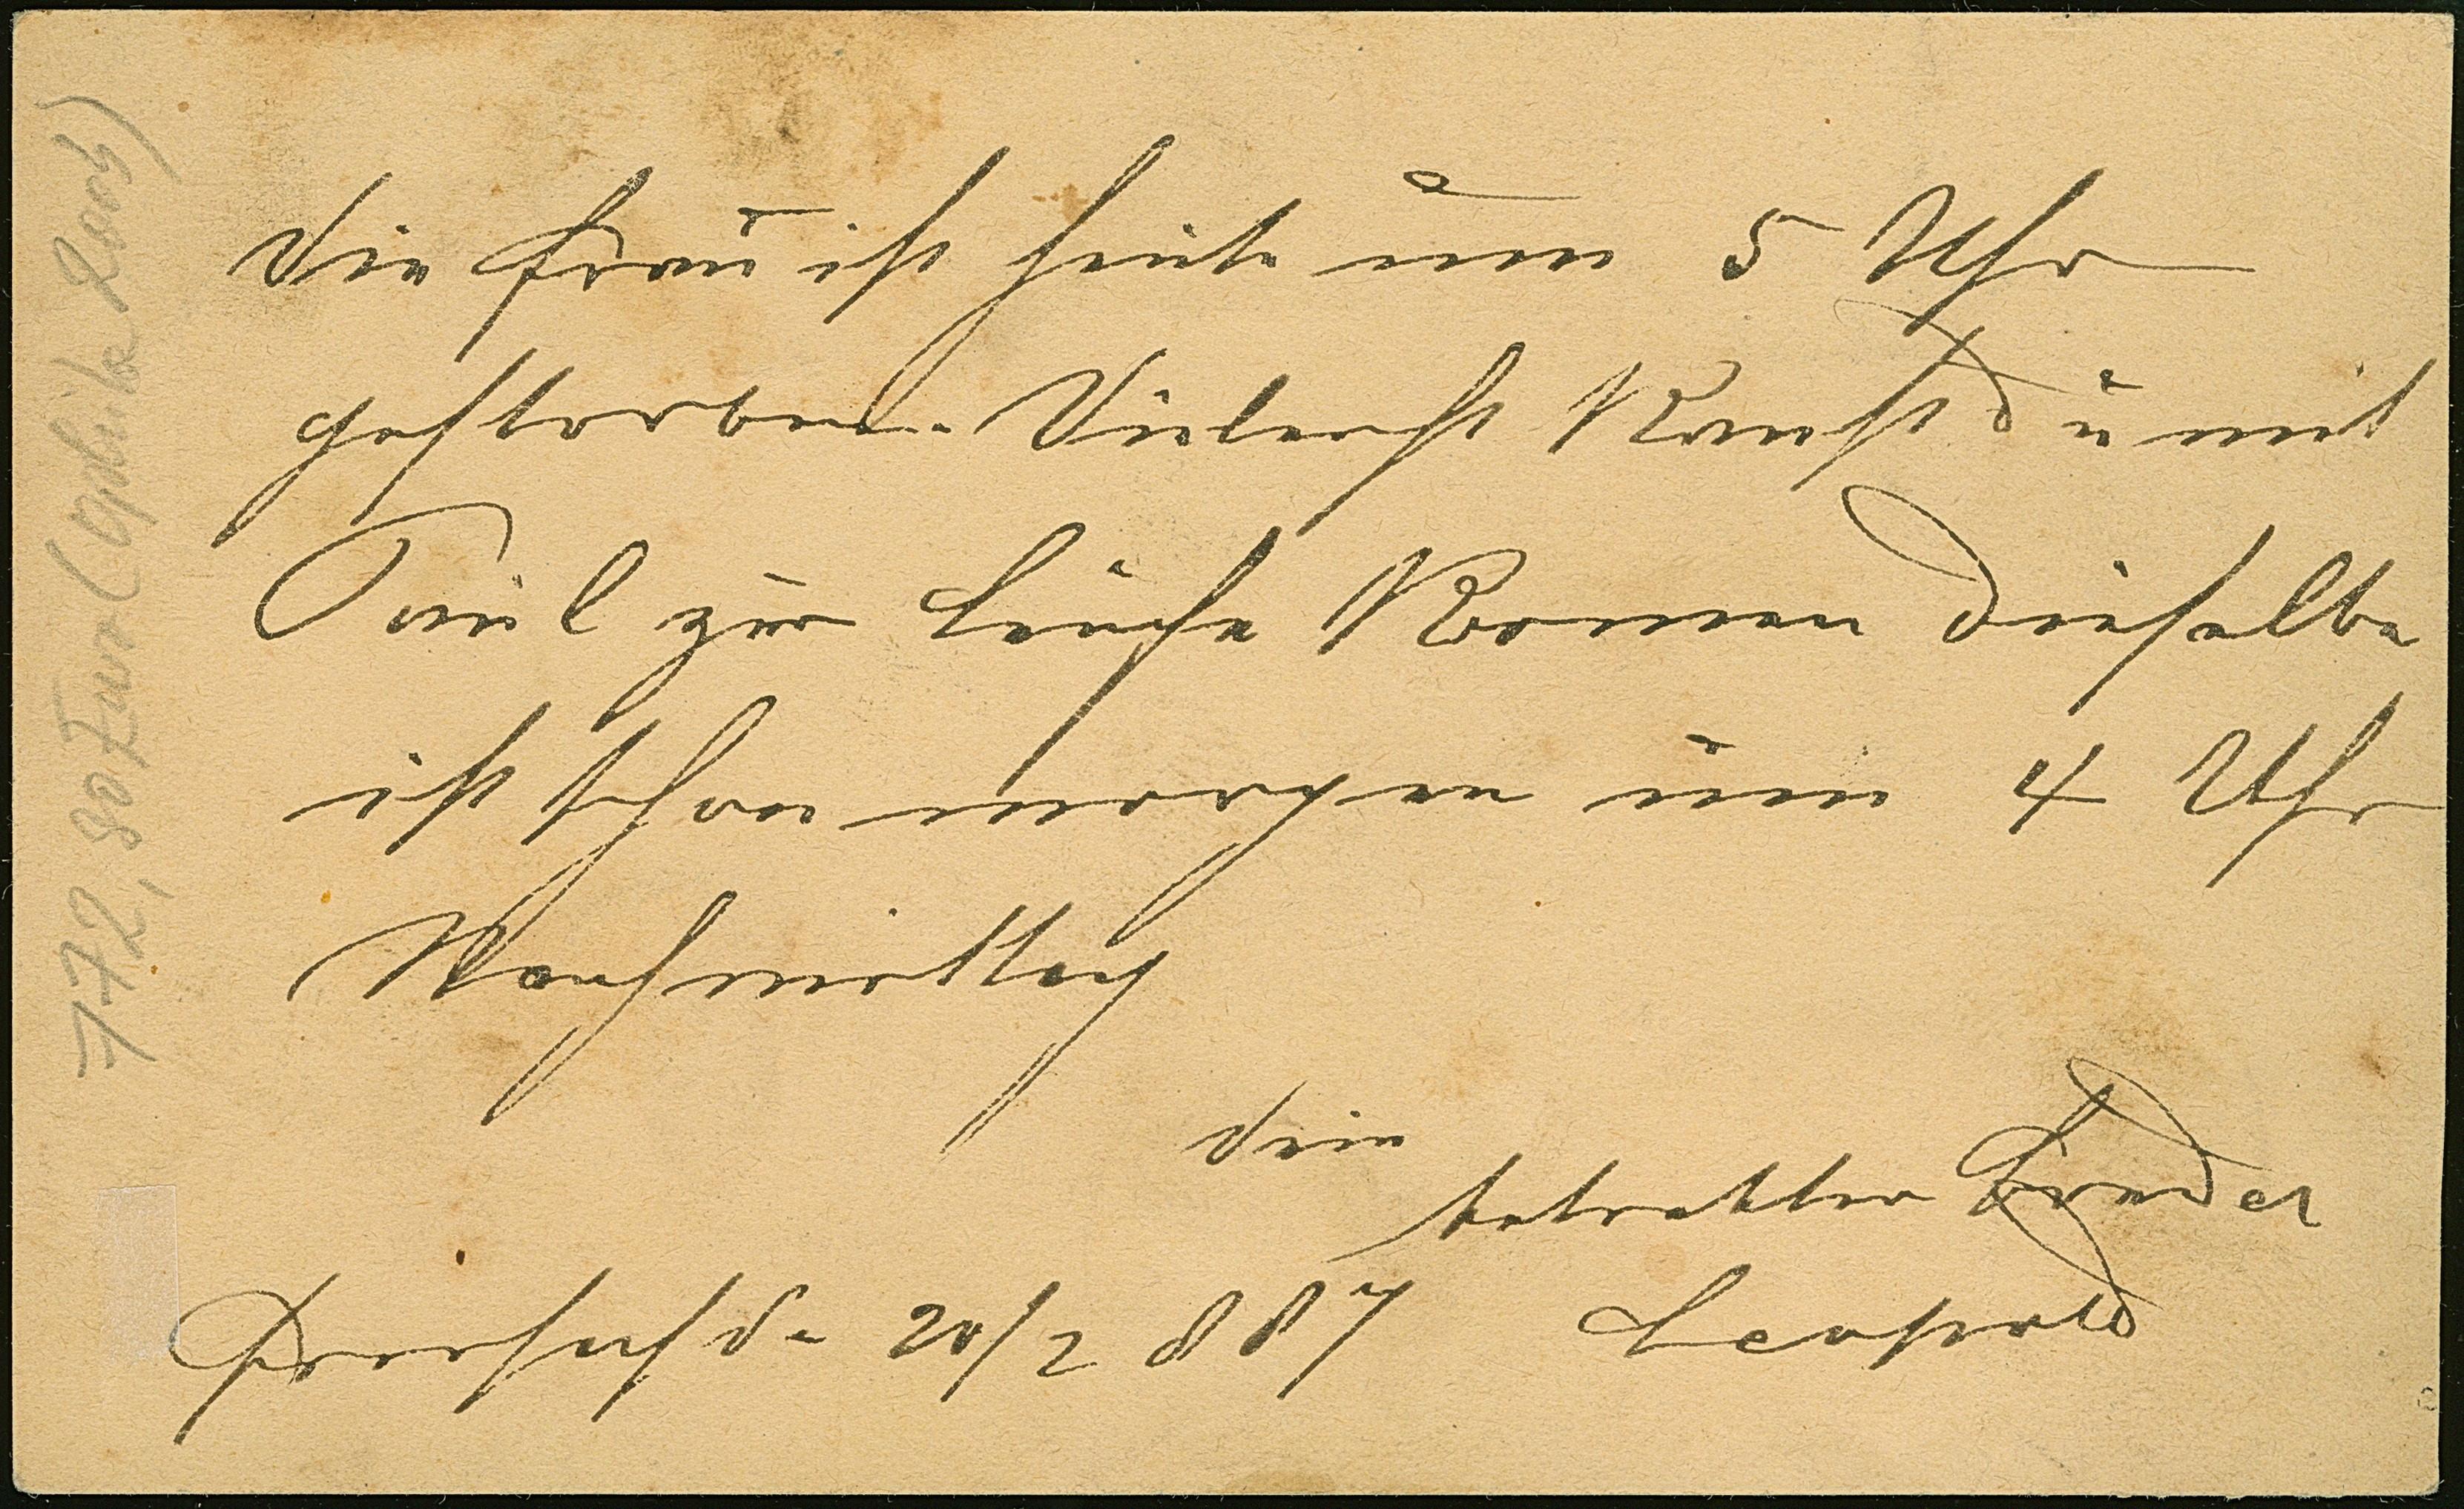 Die Frau ist heute um 5 Uhr
gestorben. Vieleicht Kanst Du mit
Paul zur Leiche Kommen dieselbe
ist schon morgen um 4 Uhr
Nachmittag
Dein
betrübter Bruder
d. 20/2 887 Leopold
172,80 Euro ( 2004)